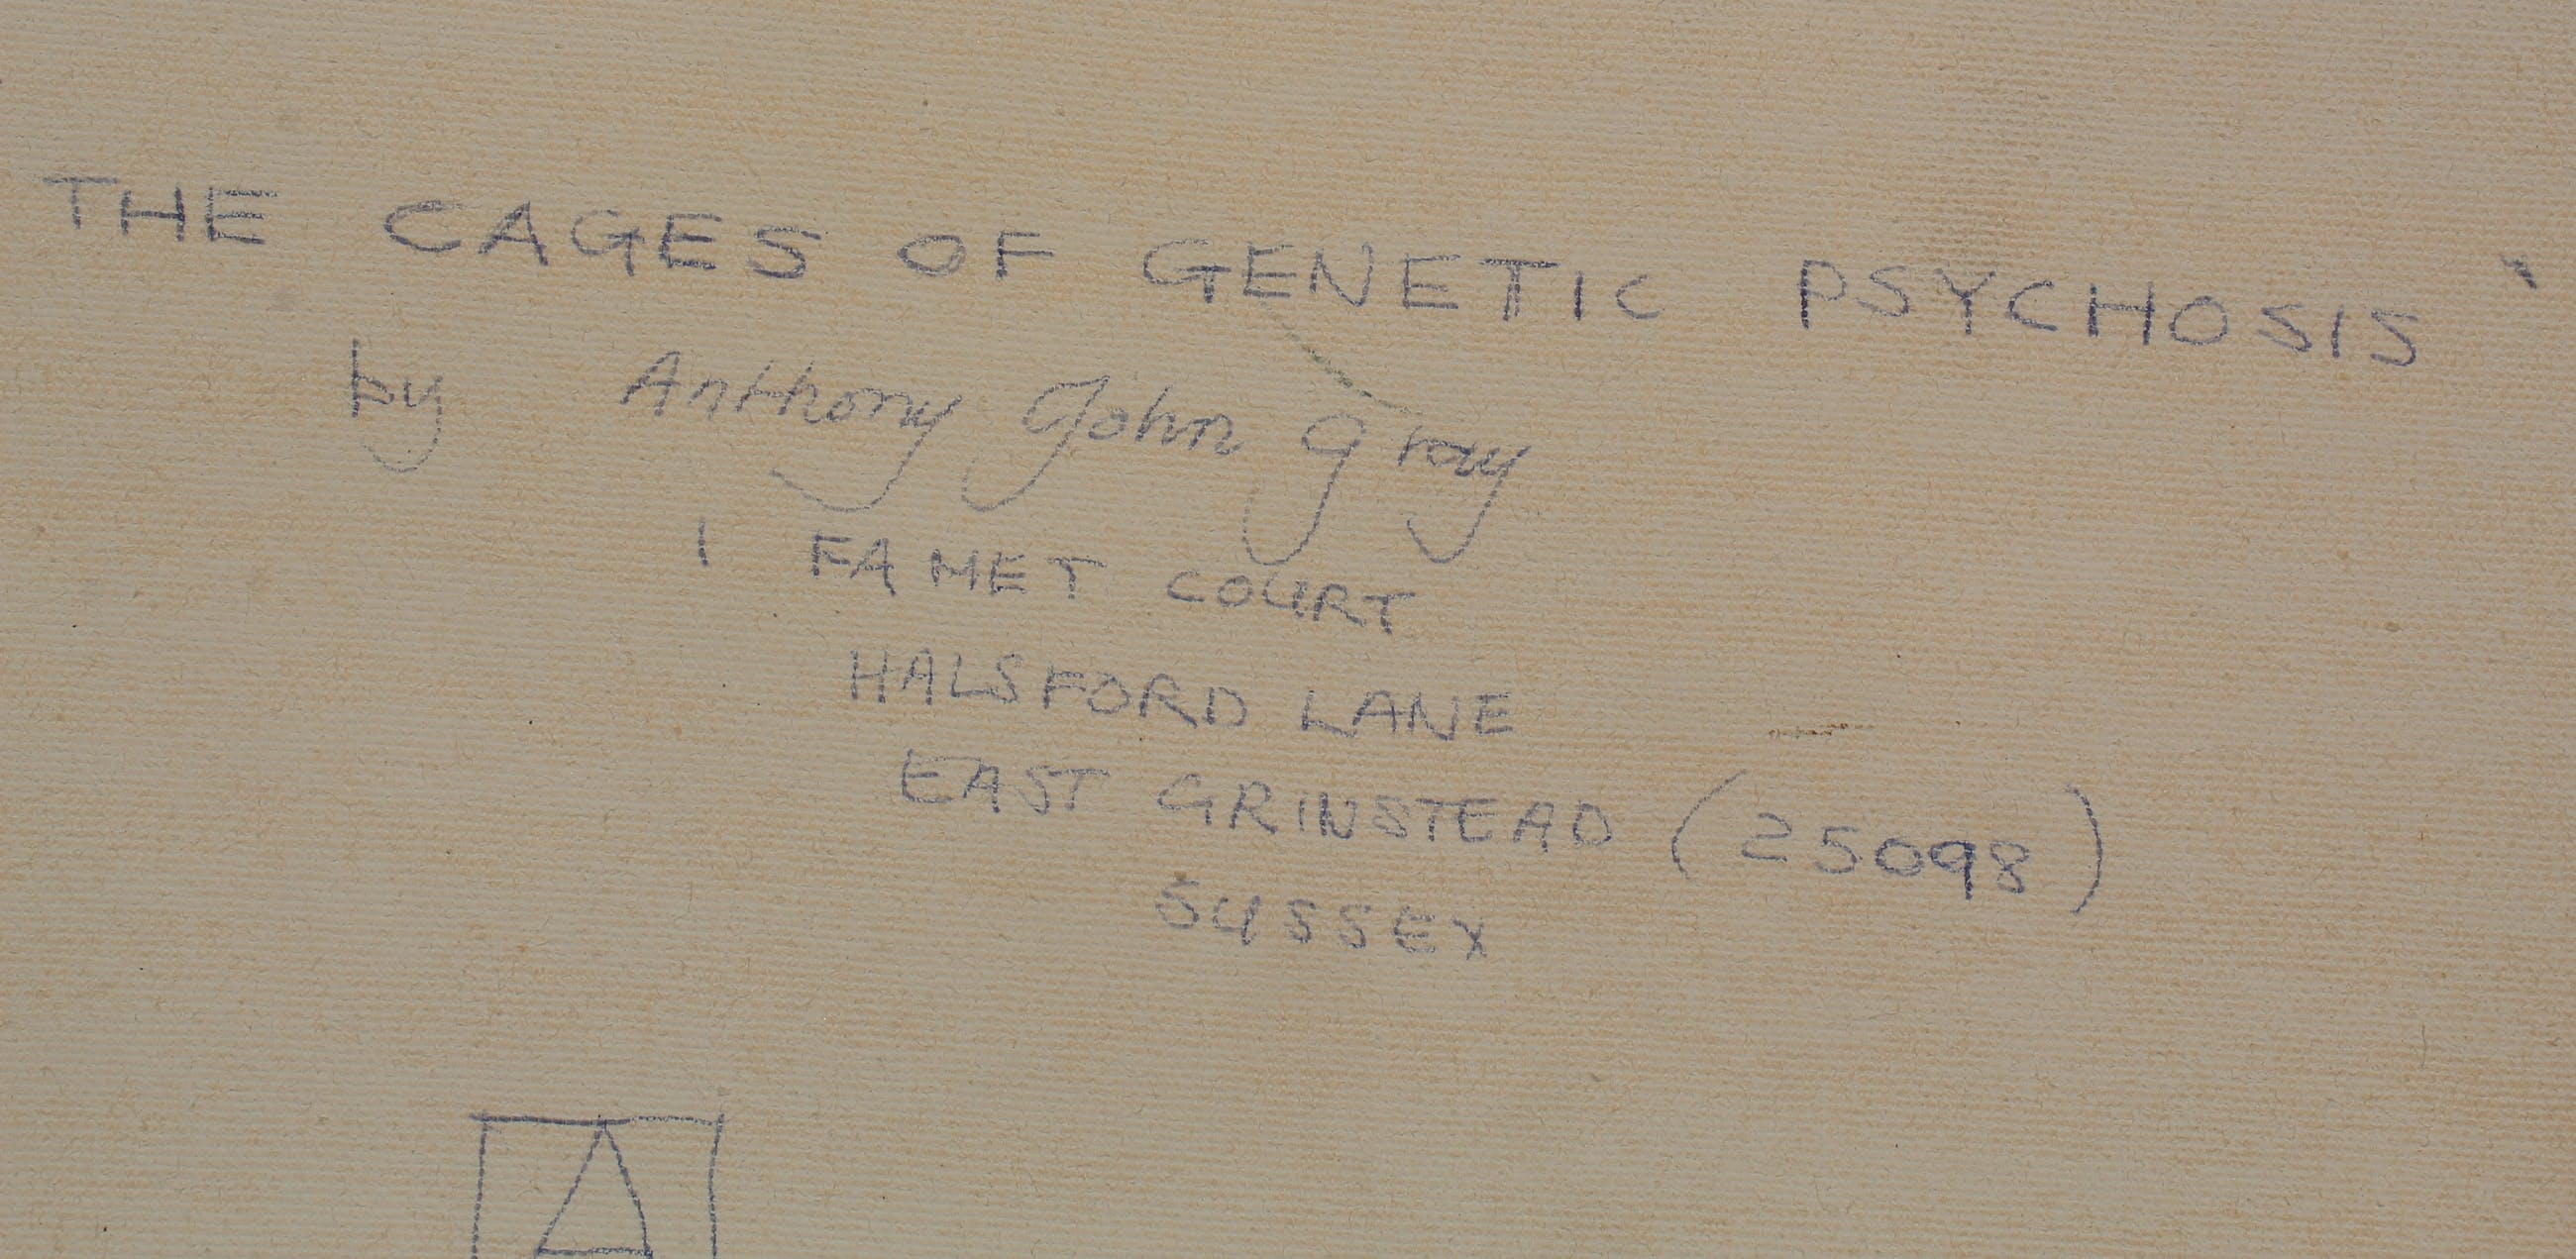 THE CAGES OF GENETIC PSYCHOSIS"
by Anthony John Gray
1 FAMET COURT
HALSFORD LANE
EAST GRINSTEAD (25098)
SUSSEX
A